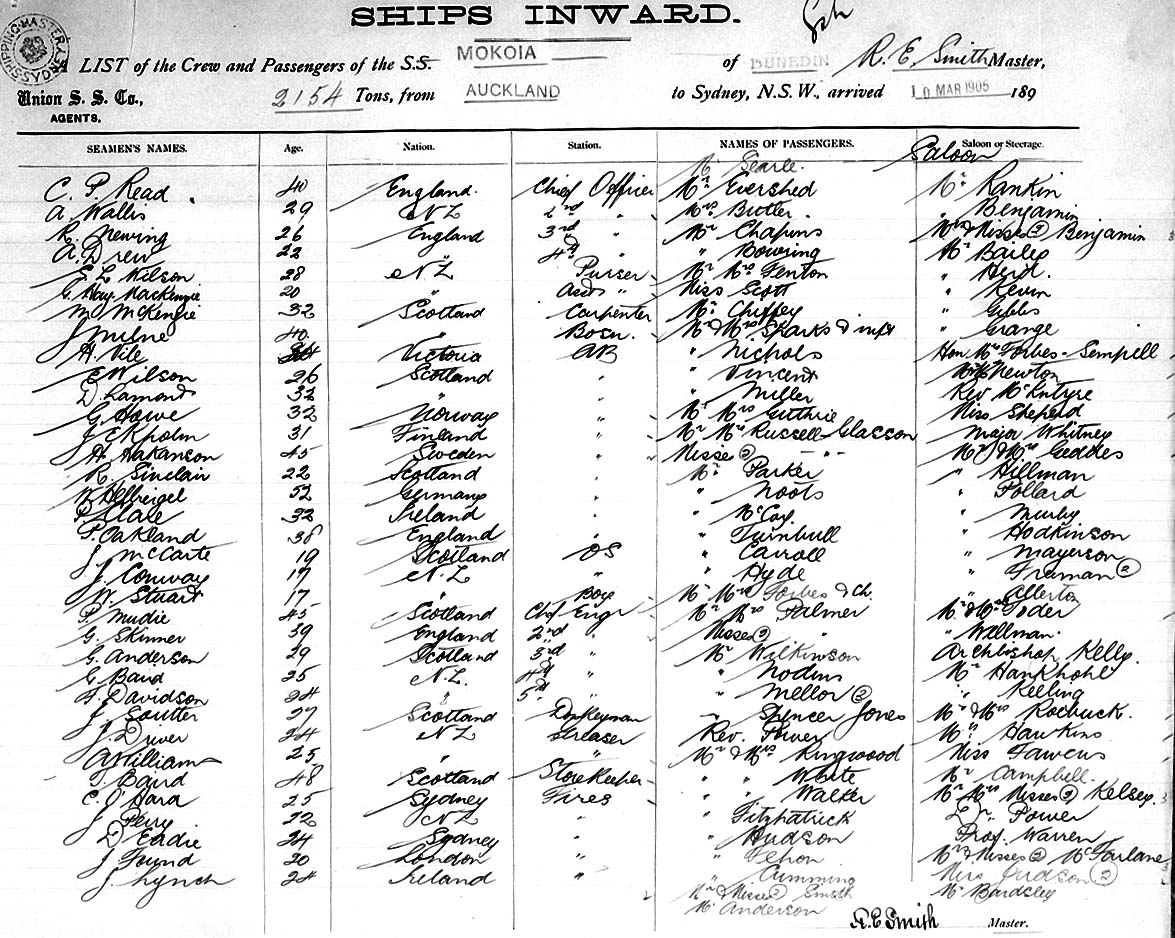 SHIPS INWARD.
SHIPPING MASTER SYDNEY
LIST of the Crew and Passengers of the S.S. MOKOIA of DUNEDIN R. E. Smith Master,
Union S. S. Co., 2154 Tons, from AUCKLAND to Sydney, N.S.W., arrived 10 MAR 1905 189
AGENTS.
SEAMEN'S NAMES. Age. Nation. Station. NAMES OF PASSENGERS. Saloon or Steerage.
Mr Searle. Saloon
C. P. Read 40 England. Chief Officer Mr. Evershed Mr. Rankin
A. Wallis 29 NZ 2nd " Mrs. Butler " Benjamin
R. Newing 26 England 3rd " Mr Chapins Mrs & Misses (2) Benjamin
A. Drew 22 " 4th " " Bowring Mr Bailey
E. L. Wilson 28 NZ Purser Mr Mrs Fenton " Herd.
G. Hay MacKenzie 20 " Asst " Miss Scott " Kevin
M McKenzie 32 Scotland Carpenter Mr. Chiffey " Gibbs
J Milne 40 " Bosn. Mr & Mrs Sparks & inft " Grange
H. Vile Victoria AB " Nichols Hon Mrs Forbes-Sempell
E Wilson 26 Scotland " " Vincent Newton
D. Lamond 32 " " " Miller Rev McIntyre
G. Howe 32 Norway " Mr Mrs Guthrie Miss Sheperd
J Ekholm 31 Finland " Mr Mrs Russell-Glasson Major Whitney
H. Hakanson 45 Sweden " Misses (2) " " Mr & Mrs Geddes
R. Sinclair 22 Scotland " Mr. Parker " Hillman
52 Germany " " Noots " Pollard
P. Slale 32 Ireland " " McCoy. " Murby
P. Oakland 38 England " " Turnbull " Hodkinson
J. McCarte 19 Scotland OS " Carroll " Mayerson
J. Conway 17 N.Z " " Hyde " Truman (2)
W. Stuart 17 " Boy Mr Mrs Forbes & Ch. " Allerton
P. Mudie 45 Scotland Chf Engr Mr Mrs Palmer Mr & Mrs Toder
G. Skinner 39 England 2nd " Misses (2) " " Wellman.
G. Anderson 29 Scotland 3rd " Mr Wilkinson Archbishop Kelly.
G. Baud 25 N.Z. 4th " " Nodins Mr Hankhohl
F Davidson 24 " 5th " " Mellor (2) " Kelling
J. Soutter 27 Scotland Donkeyman " Spencer Jones Mr & Mrs Roebuck.
J. Driver 24 NZ Greaser Rev. Power Mr. Hawkins
A William 25 " " Mr & Mrs Ringwood Miss Fawcus
T. Baird 48 Scotland Storekeeper " " White Mr Campbell.
C. O'Hara 25 Sydney Fires " " Walker Mr Mrs Misses (2) Kelsey
J Perry 22 NZ " " Fitzpatrick Dr. Power
D Eadie 24 Sydney " " Hudson Prof. Warren
J Fuynd 20 London " " Tehon Mrs & Misses (2) McFarlane
J. Lynch 24 Ireland " " Cumming Miss Judson (2)
Mr & Misses (2) Smith Mr Bardsley
Mr Anderson
R.E Smith Master.